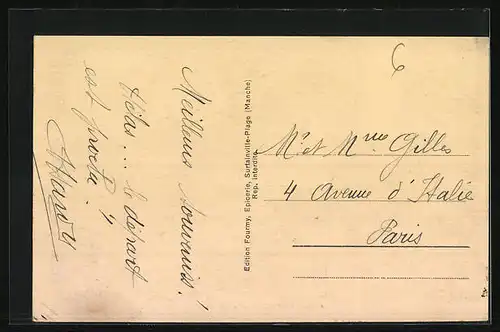 Meilleurs souvenirs !
Hélas... le départ
est proche !
Edition Fourmy, Epicerie, Surtainville-Plage (Manche)
Rep. Interdite
6
Mr et Mme Gilles
4 Avenue d'Italie
Paris